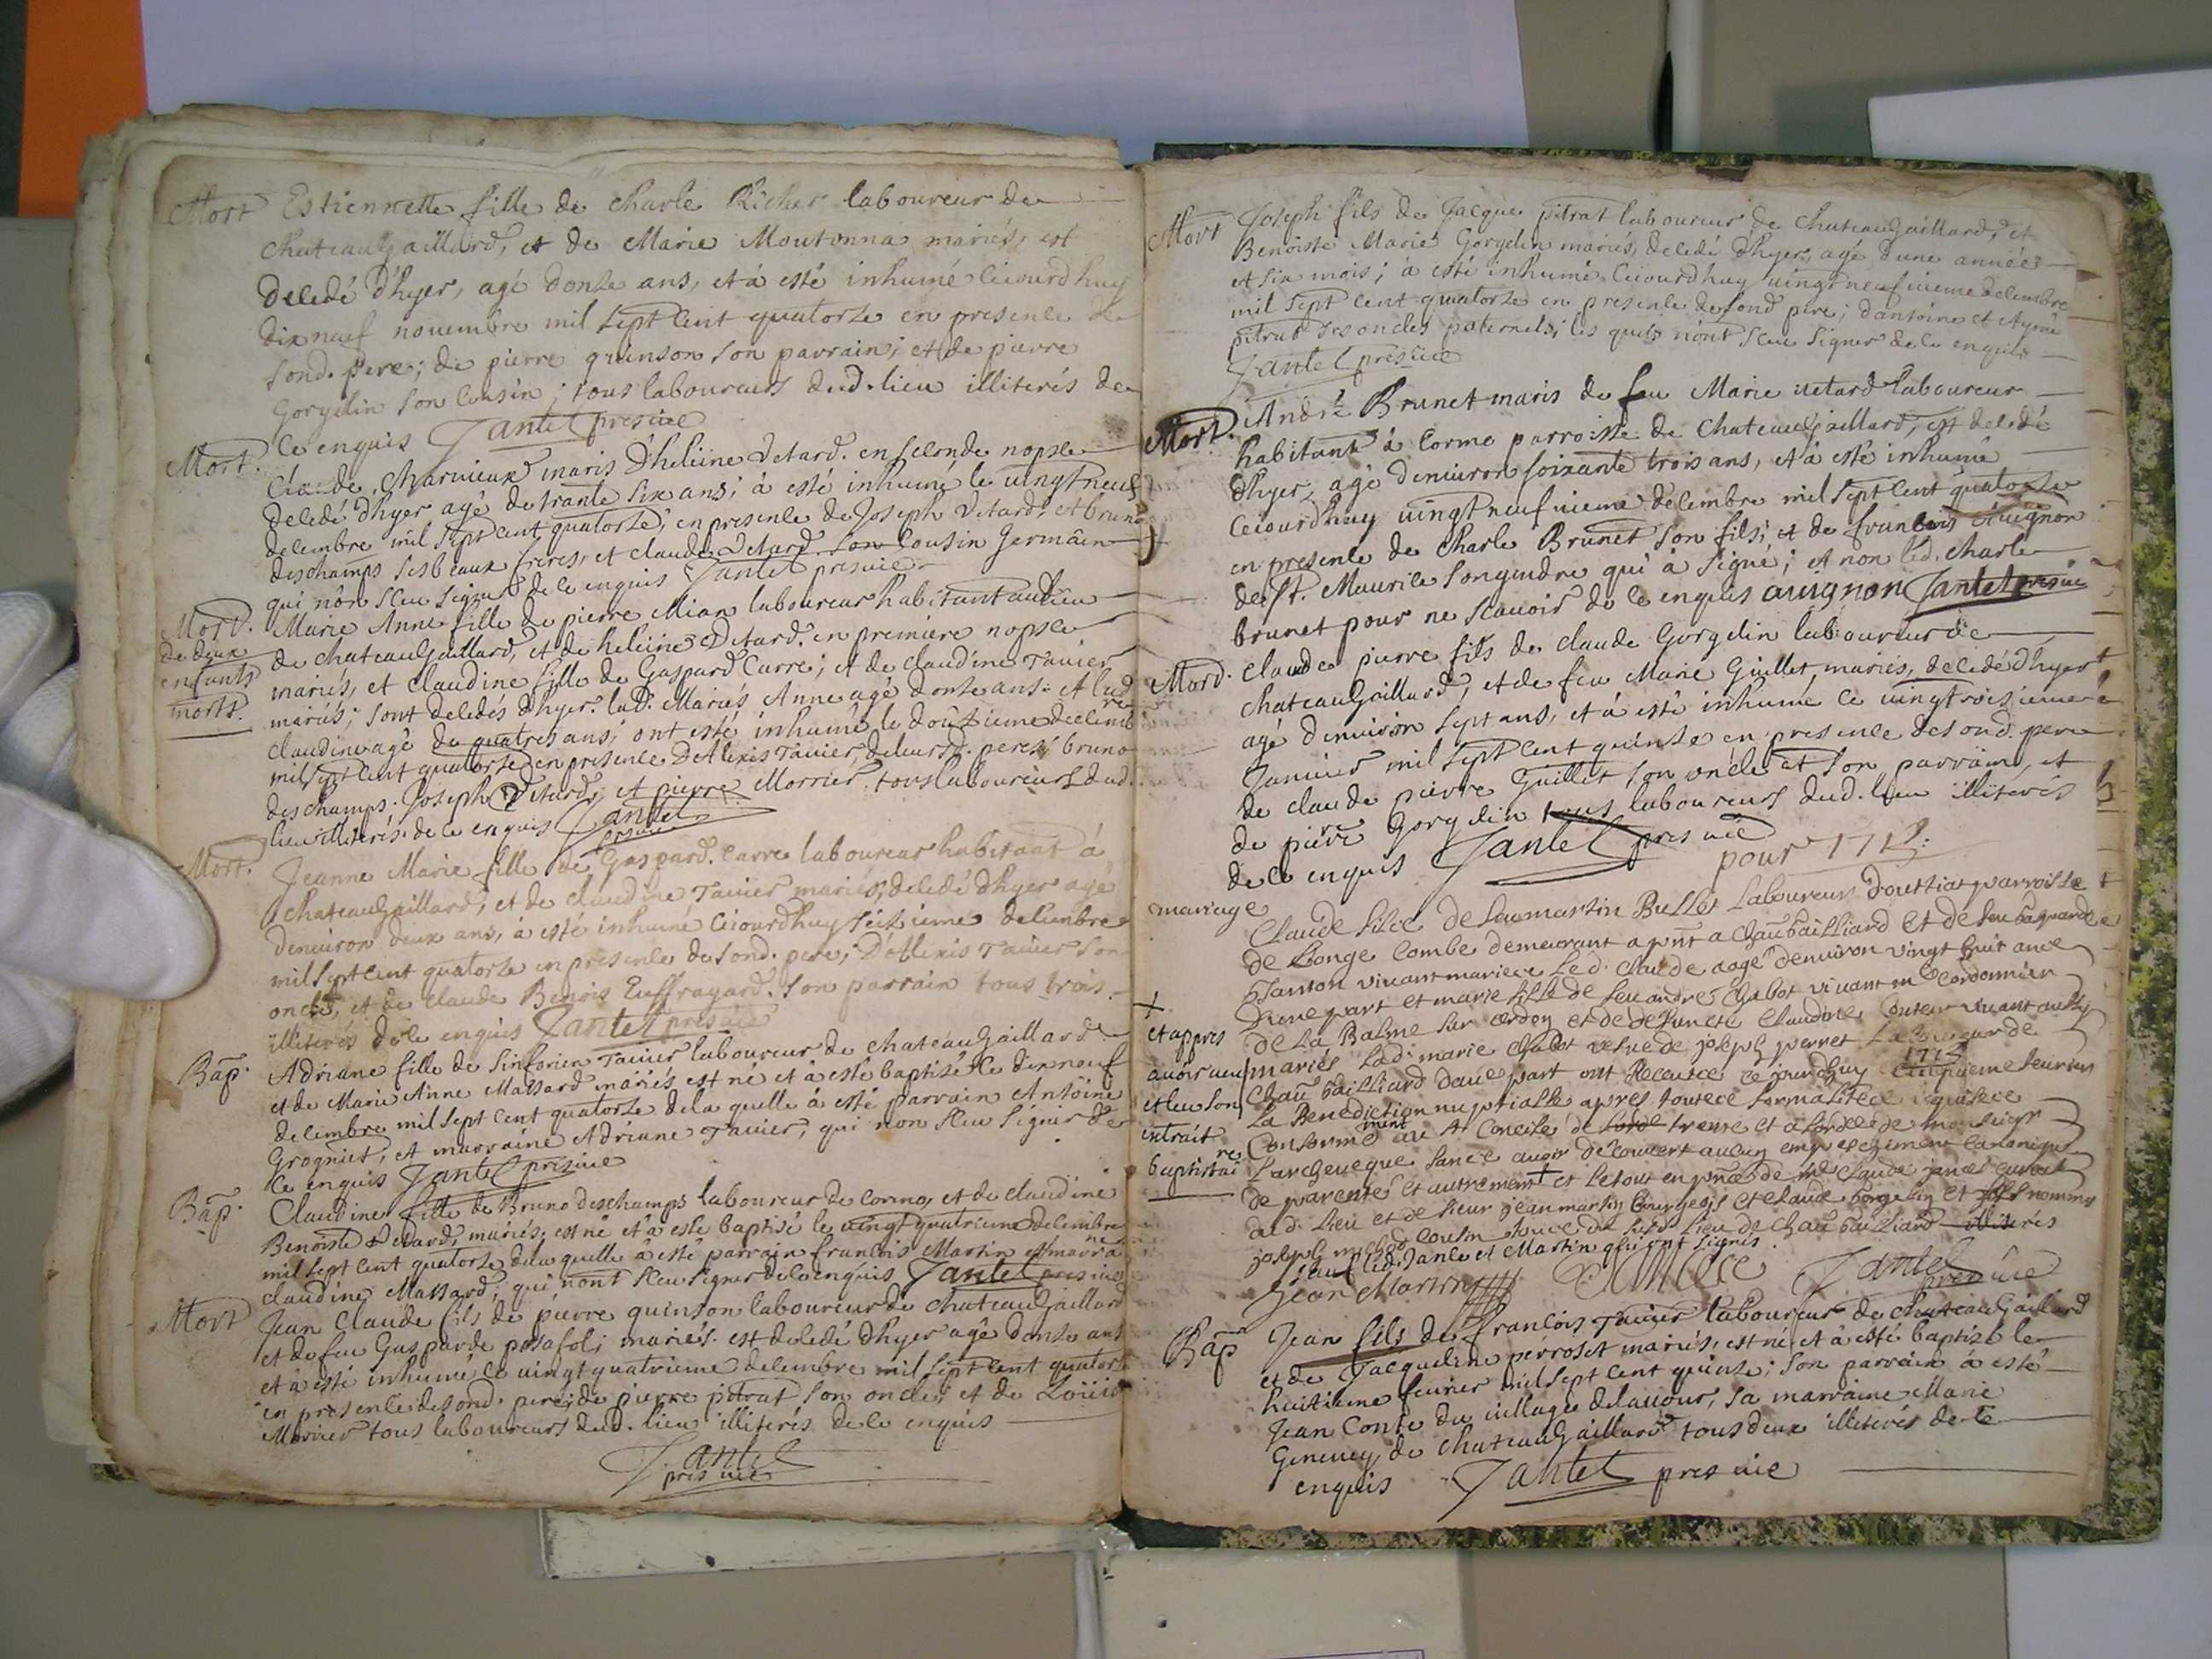 Mort Estiennette fille de Charle Richer laboureur de
chateauGaillard, et de Marie Moutonna mariés, est
decedé d'hyer, agé d'onse ans, et à esté inhumé ceiourdhuy
dix neuf nouembre mil sept cent quatorse en presence de
sond. pere; de pierre quinson son parrain; et de pierre
Gorgelin son cousin; tous laboureurs dud. lieu illiterés de
ce enquis Jantet pres uice
Mort. Claude Charuieux maris d'heleine Detard. en seconde nopse
decedé d'hyer agé de trante six ans; à esté inhumé le uingt neuf
decembre mil sept cent quatorse, en presence de Joseph Detard, et bruno
deschamps ses beaux freres, et claude Detard son cousin Germain
qui n'on sceu signer de ce enquis Jantet pres uice
Mort. Marie Anne fille de pierre Mian laboureur habitant audieu
de deux de chateauGaillard, et de heleine Detard. en premiere nopse
enfants mariés, et claudine fille de Gaspard Carre; et de claudine Tauier
morts. mariés; sont decedés d'hyer. lad. Mariés Anne agé d'onse ans. et lad
claudine agé de quatres ans; ont esté inhumé le douzieme decembre
mil sept cent quatorse en presence d'Alexis Tauier, de leursd. peres, bruno
deschamps. Joseph Detard, et pierre Morrier tous laboureurs dud.
lieu illiterés de ce enquis Jantet
pres uice
Mort. Jeanne Marie fille de Gaspard. Carre laboureur habitant à
chateauGaillard, et de claudine Tauier mariés, decedé d'hyer agé
d'enuiron deux ans, à esté inhumé ceiourdhuy seizieme decembre
mil sept cent quatorse en presence de sond. pere, D'Alexis Tauier son
oncle, et de claude Benois Euffragard. son parrain tous trois
illiterés de ce enquis Jantet pres uice
Bap. Adriane fille de Sinforien Tauier laboureur de chateauGaillard
et de Marie Anne Massard mariés est né et à esté baptisé le dix neuf
decembre mil sept cent quatorse de la quelle à esté parrain Antoine
Grogniet, et marraine Adriane Tauier, qui non sceu signer de
ce enquis Jantet pres uice
Bap. Claudine fille de Bruno deschamps laboureur de Cormo, et de claudine
Benoiste Detard, mariés, est né et à esté baptisé le uingt quatrieme decembre
mil sept cent quatorse de la quelle à esté parrain francois Martin et marraine
claudine Massard, qui n'ont sceu signer de ce enquis Jantet pres uice
Mort Jean Claude fils de pierre quinson laboureur de chateauGaillard
et de feu Gasparde posafol; mariés. est decedé d'hyer agé d'onse ans
et à esté inhumé le uingt quatrieme decembre mil sept cent quatorse
en presence de sond. pere, de pierre pitrat son oncle, et de Loüis
Morrier tous laboureurs dud. lieu illiterés de ce enquis
Jantet
pres uice
Mort Joseph fils de Jacque pitrat laboureur de chateauGaillard, et
Benoiste Marie Gorgelin mariés, decedé d'hyer, agé d'une année
et six mois; à esté inhumé ceiourdhuy uingt neufuieme decembre
mil sept cent quatorse en presence de sond pere; d'antoine et Aymé
pitrat ses oncles paternels; les quels n'ont sceu signer de ce enquis
Jantet pres uice
Mort. André Brunet maris de feu Marie Detard laboureur
habitant à Cormo parroisse de chateauGaillard, est decedé
d'hyer, agé d'enuiron soixante trois ans, et à esté inhumé
ceiourdhuy uingt neufuieme decembre mil sept cent quatorse
en presence de charle Brunet son fils; et de francois Auignon
de St. Maurice son gendre qui à signé; et non led. charle
brunet pour ne scauoir de ce enquis auignon Jantet pres uice
Mord. claude pierre fils de claude Gorgelin laboureur de
chateauGaillard, et de feu Marie Guillet mariés, decedé d'hyer
agé d'enuiron sept ans, et à esté inhumé ce uingt troisieme
Januier mil sept cent quinse en presence de sond. pere
de claude pierre Guillet son oncle et son parrain, et
de pierre Gorgelin tous laboureurs dud. lieu illiterés
de ce enquis Jantet pres uice
pour 1715.
mariage Claude filie de feu martin Bullet Laboureur parroisse
de Longe Combe demeurant a Chau Gailliard et de feu
vivant mariee Led. Claude aagé denuiron vingt huit ans
+ Dune part et marie fille de feu andre Chabot vivant cordonnier
et appres de La Balme Sur cerdon et de defuncte Claudine vivant aussy
auoir ueu mariés Lad. marie Chabot vefue de joseph perret Laboureur de
et leu son Chau Gailliard daue part ont Receuee ce jourdhuy Cinquieme feurier 1715
extrait La Benediction nuptialle apres toutee formalitee
baptistaire Conformement au St Concile de trente et de monseigr
Larcheueque Sance auoir decouuert aucun empechement canonique
de parenté et autrement + et le tout en pnce de claude
dud. Lieu et de sieur jean martin bourgeois et claude Gorgelin et
joseph cousin du sud Lieu de Chau Gailliard illiterés
sauf led. Janle et Martin qui ont signés
Jean Martin Jantet
pres uice
Bap Jean fils de francois Tauier laboureur de chateauGaillard
et de Jacqueline perroset mariés, est né et à esté baptizé le
huitieme feurier mil sept cent quinse; son parrain à esté
Jean Conte du uillage delauour, sa marraine Marie
Geneuey de chateauGaillard tous deux illiterés de ce
enquis Jantet pres uice